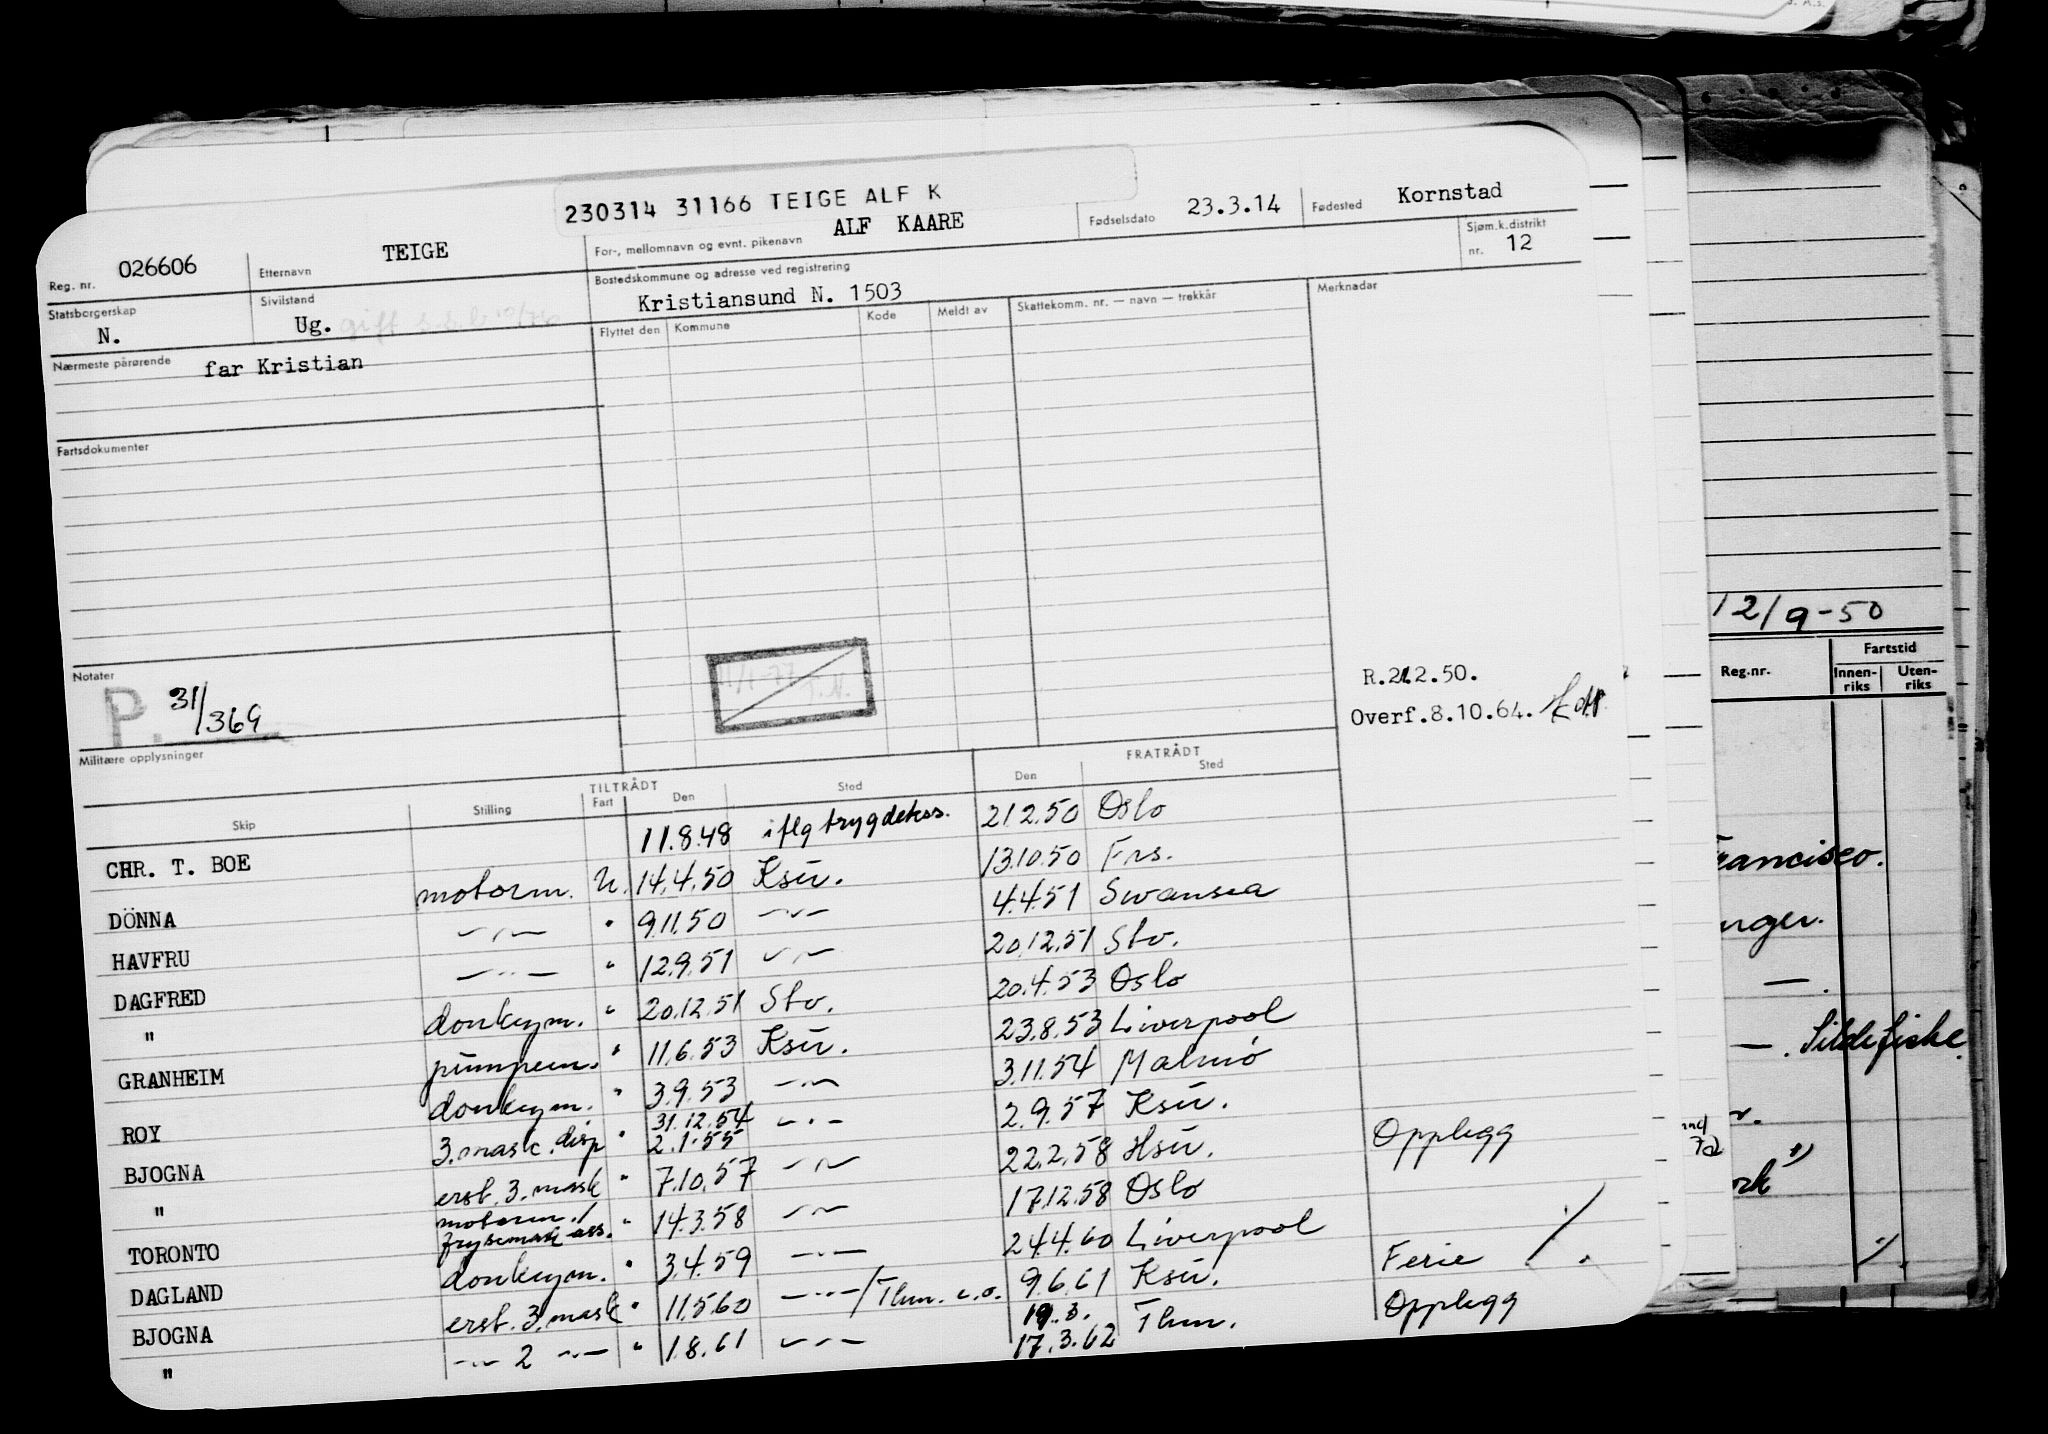 230314 31166 TEIGE ALF K
Reg. nr. 026606 Etternavn TEIGE For-, mellomnavn og evnt. pikenavn ALF KAARE Fødselsdato 23.3.14 Fødested Kornstad
Statsborgerskap N. Sivilstand Ug. gift Bostedskommune og adresse ved registrering Kristiansund N. 1503 Sjøm.k.distrikt nr. 12
Nærmeste pårørende far Kristian
Flyttet den Kommune Kode Meldt av Skattekomm. nr. — navn — trekkår Merknader
Fartsdokumenter
Notater
P. 31/369
R.212.50.
Overf.8.10.64.
Militære opplysninger
TILTRÅDT FRATRÅDT
Skip Stilling Fart Den Sted Den Sted
CHR. T. BOE 11.8.48 iflg trygdekas. 212.50 Oslo
DÖNNA motorm. U. 14.4.50 Ksu. 13.10.50 Frs.
HAVFRU —„— " 9.11.50 —„— 4.4.51 Swansea
DAGFRED —„— " 12.9.51 —„— 20.12.51 Stv.
" donkeym. " 20.12.51 Stv. 20.4.53 Oslo
GRANHEIM pumpem. " 11.6.53 Ksu. 23.8.53 Liverpool
ROY donkeym. " 3.9.53 —„— 3.11.54 Malmö
BJOGNA 3.mask.disp " 31.12.54 2.1.55 —„— 2.9.57 Ksu.
" erst. 3. mask " 7.10.57 —„— 22.2.58 Hsu. Opplegg
TORONTO motorm./ frysemask ass. " 14.3.58 —„— 17.12.58 Oslo
DAGLAND donkeym. " 3.4.59 —„— 24.4.60 Liverpool
BJOGNA erst. 3. mask " 11.5.60 —„— /Thm. 9.6.61 Ksu. Ferie
" —„— 2 —„— " 1.8.61 —„— 19.3. 17.3.62 Thm. Opplegg
12/9-50
Reg.nr. Fartstid
Innen-riks Uten-riks
Francisco.
Sildefiske